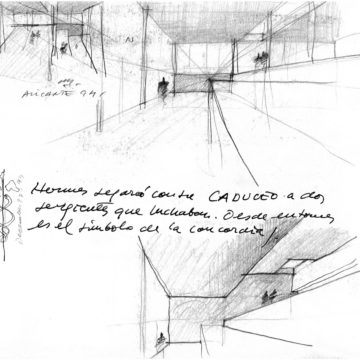 ALICANTE 94
Hermes separó con su CADUCEO a dos
serpientes que luchaban. Desde entonces
es el símbolo de la concordia!